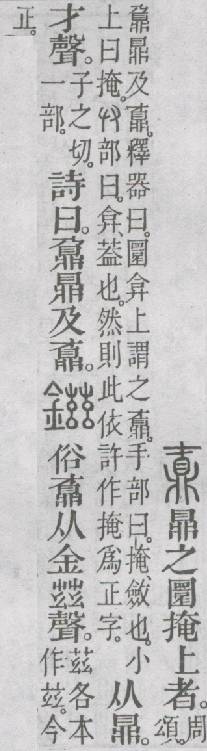 鼒鼎之圜掩上者。周頌。
鼐鼎及鼒。釋器曰。圜弇上謂之鼒。手部曰。掩、斂也。小
上曰掩。𠬞部曰。弇、葢也。然則此依許作掩爲正字。
从鼎。
才聲。子之切。一部。詩曰。鼐鼎及鼒。鎡俗鼒从金茲聲。茲各本作兹。今
正。